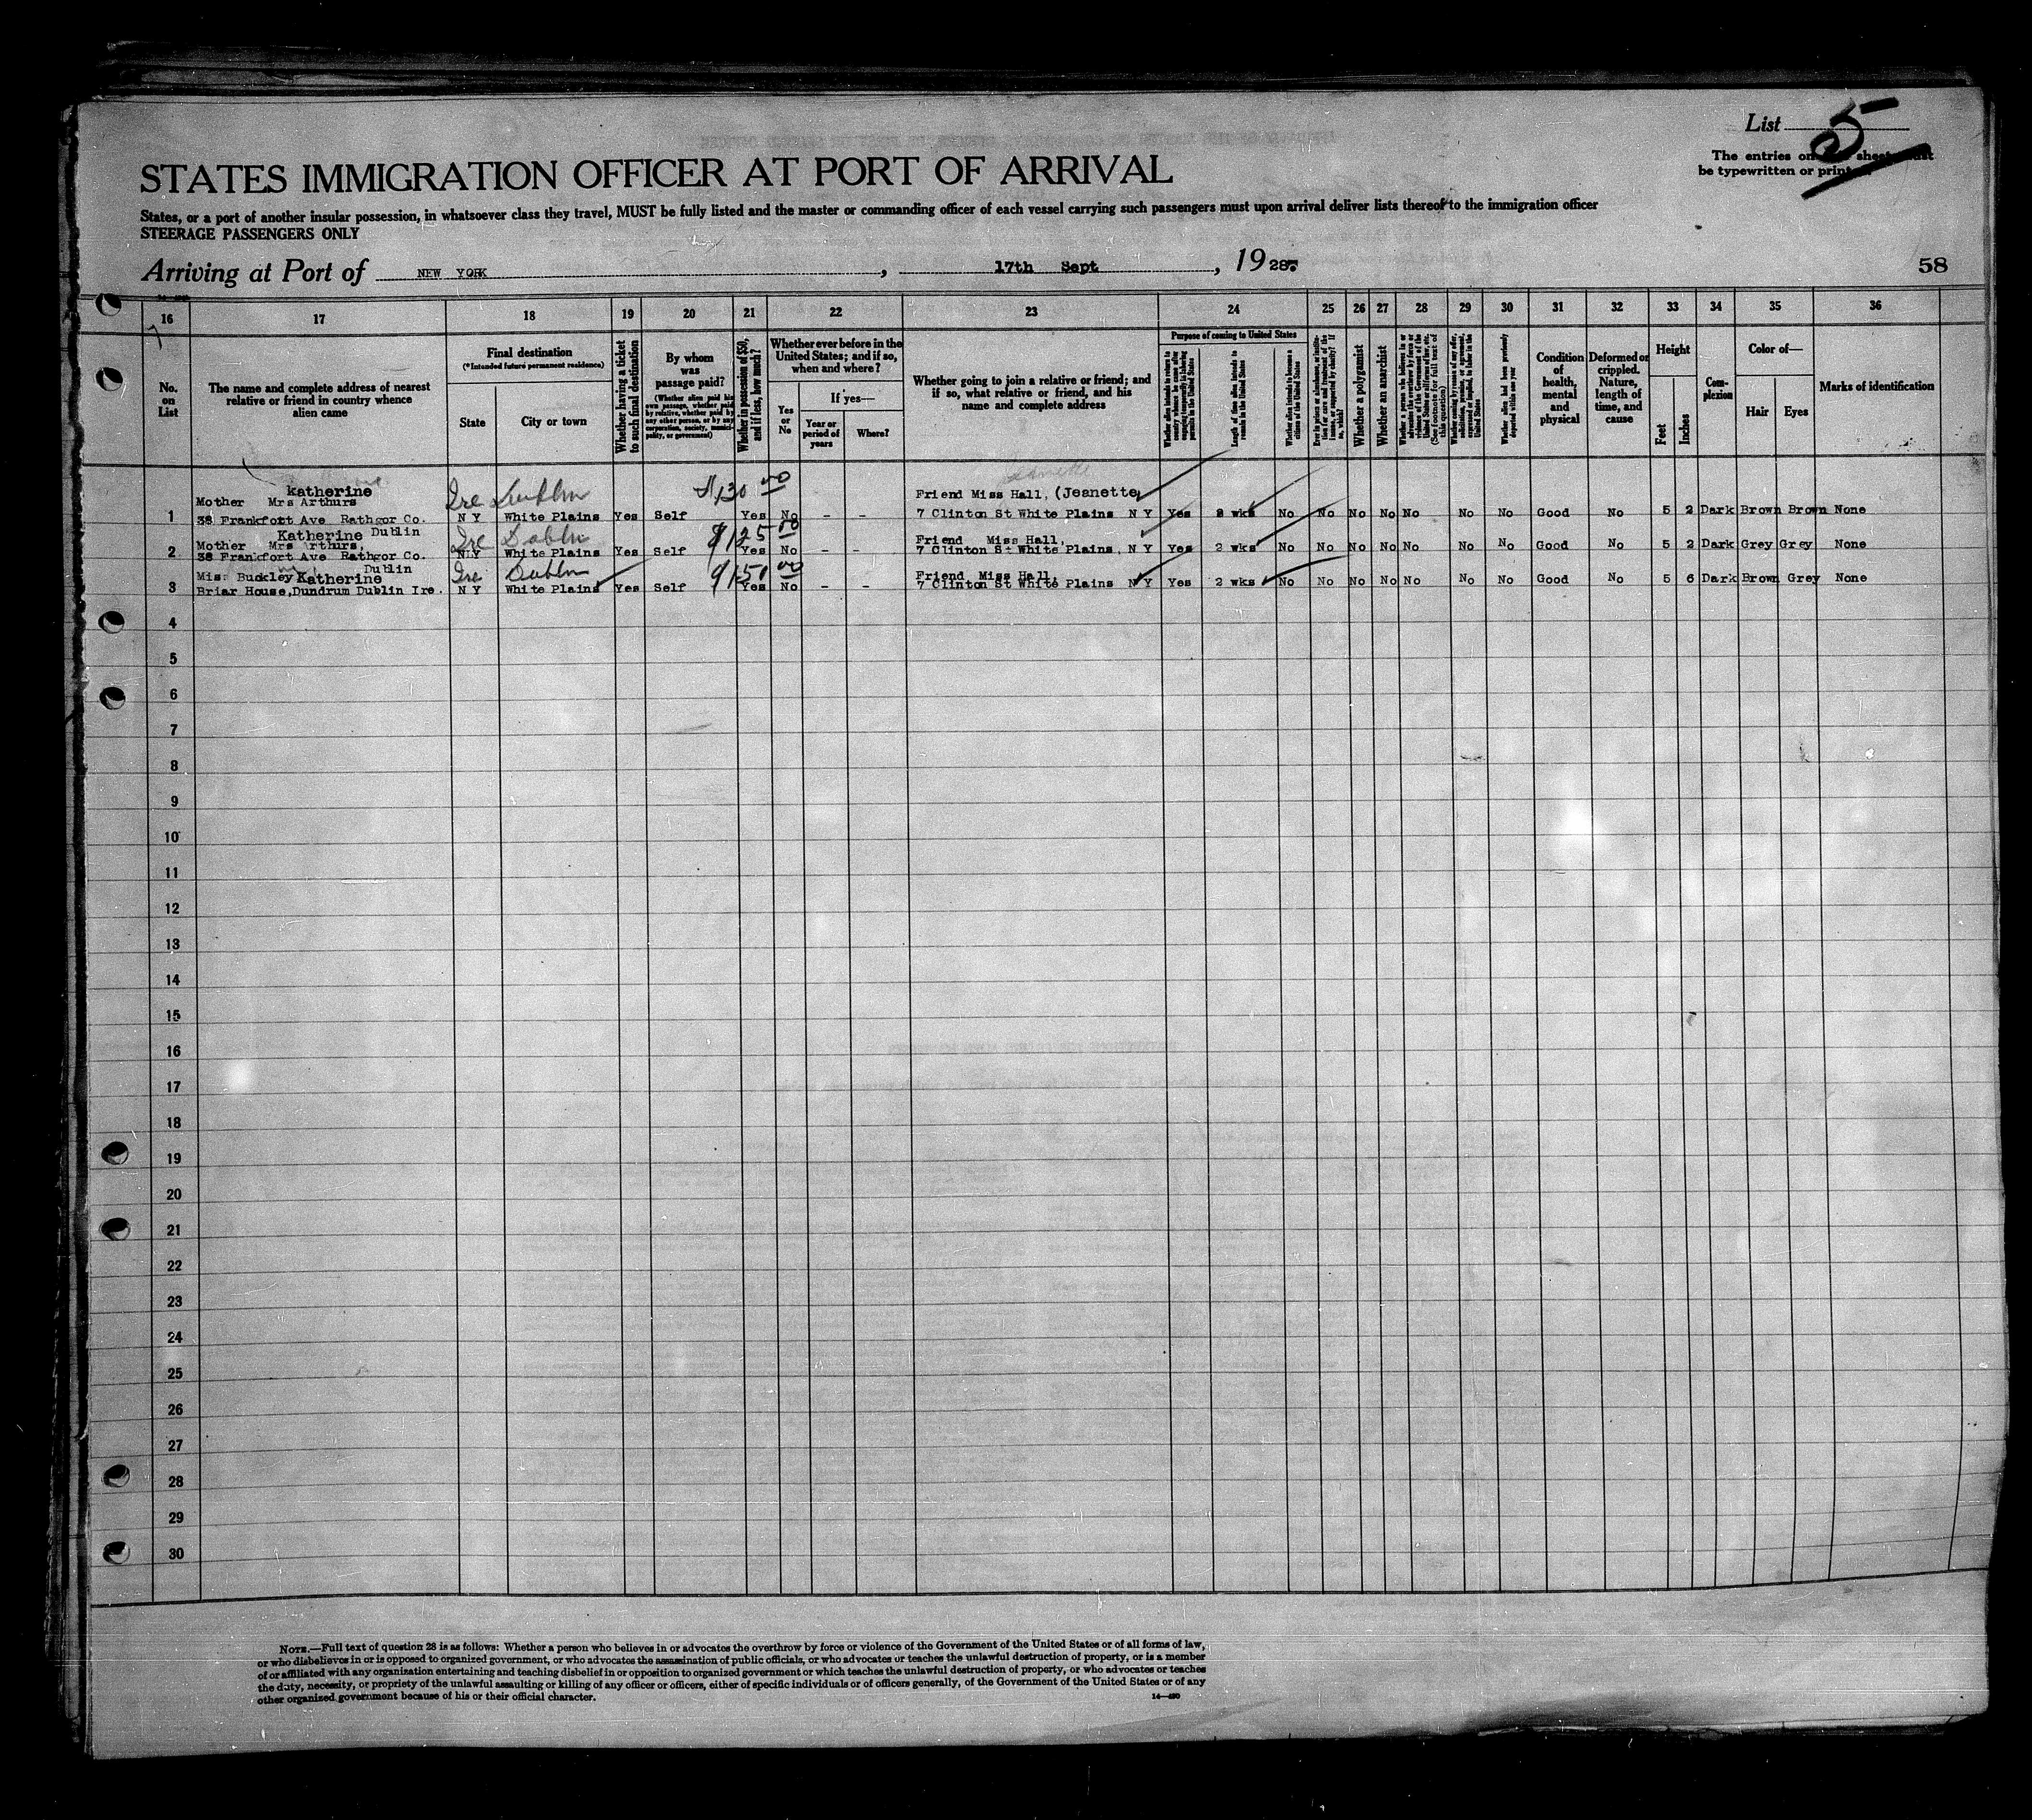 List 5
The entries on sheet must
be typewritten or printed.
STATES IMMIGRATION OFFICER AT PORT OF ARRIVAL
States, or a port of another insular possession, in whatsoever class they travel, MUST be fully listed and the master or commanding officer of each vessel carrying such passengers must upon arrival deliver lists thereof to the immigration officer
STEERAGE PASSENGERS ONLY
Arriving at Port of NEW YORK, 17th Sept, 1928. 58
16 17 18 19 20 21 22 23 24 25 26 27 28 29 30 31 32 33 34 35 36
No. on List
The name and complete address of nearest relative or friend in country whence alien came
Final destination
(*Intended future permanent residence)
State
City or town
Whether having a ticket to such final destination
By whom was passage paid?
(Whether alien paid his own passage, whether paid by relative, whether paid by any other person, or by any corporation, society, municipality, or government)
Whether in possession of $50, and if less, how much?
Whether ever before in the United States; and if so, when and where?
Yes or No
If yes—
Year or period of years
Where?
Whether going to join a relative or friend; and if so, what relative or friend, and his name and complete address
Purpose of coming to United States
Length of time alien intends to remain in the United States
Whether alien intends to become a citizen of the United States
Whether a polygamist
Whether an anarchist
Whether alien had been previously deported within one year
Condition of health, mental and physical
Deformed or crippled. Nature, length of time, and cause
Height
Feet
Inches
Complexion
Color of—
Hair
Eyes
Marks of identification
Katherine
Mother Mrs Arthurs Ire Dublin $130 00 Friend Miss Hall, (Jeanette
1 38 Frankfort Ave Rathgor Co. N Y White Plains Yes Self Yes No - - 7 Clinton St White Plains N Y Yes 2 wks No No No No No No No Good No 5 2 Dark Brown Brown None
Katherine Dublin
Mother Mrs Arthurs, Ire Dublin $125 00 Friend Miss Hall,
2 38 Frankfort Ave Rathgor Co. N.Y White Plains Yes Self Yes No - - 7 Clinton St White Plains, N Y Yes 2 wks No No No No No No No Good No 5 2 Dark Grey Grey None
Dublin
Mis: Buckley Katherine Ire Dublin $150 00 Friend Miss Hall,
3 Briar House, Dundrum Dublin Ire. N Y White Plains Yes Self Yes No - - 7 Clinton St White Plains N Y Yes 2 wks No No No No No No No Good No 5 6 Dark Brown Grey None
4
5
6
7
8
9
10
11
12
13
14
15
16
17
18
19
20
21
22
23
24
25
26
27
28
29
30
NOTE.—Full text of question 28 is as follows: Whether a person who believes in or advocates the overthrow by force or violence of the Government of the United States or of all forms of law,
or who disbelieves in or is opposed to organized government, or who advocates the assassination of public officials, or who advocates or teaches the unlawful destruction of property, or is a member
of or affiliated with any organization entertaining and teaching disbelief in or opposition to organized government or which teaches the unlawful destruction of property, or who advocates or teaches
the duty, necessity, or propriety of the unlawful assaulting or killing of any officer or officers, either of specific individuals or of officers generally, of the Government of the United States or of any
other organized government because of his or their official character. 14—480